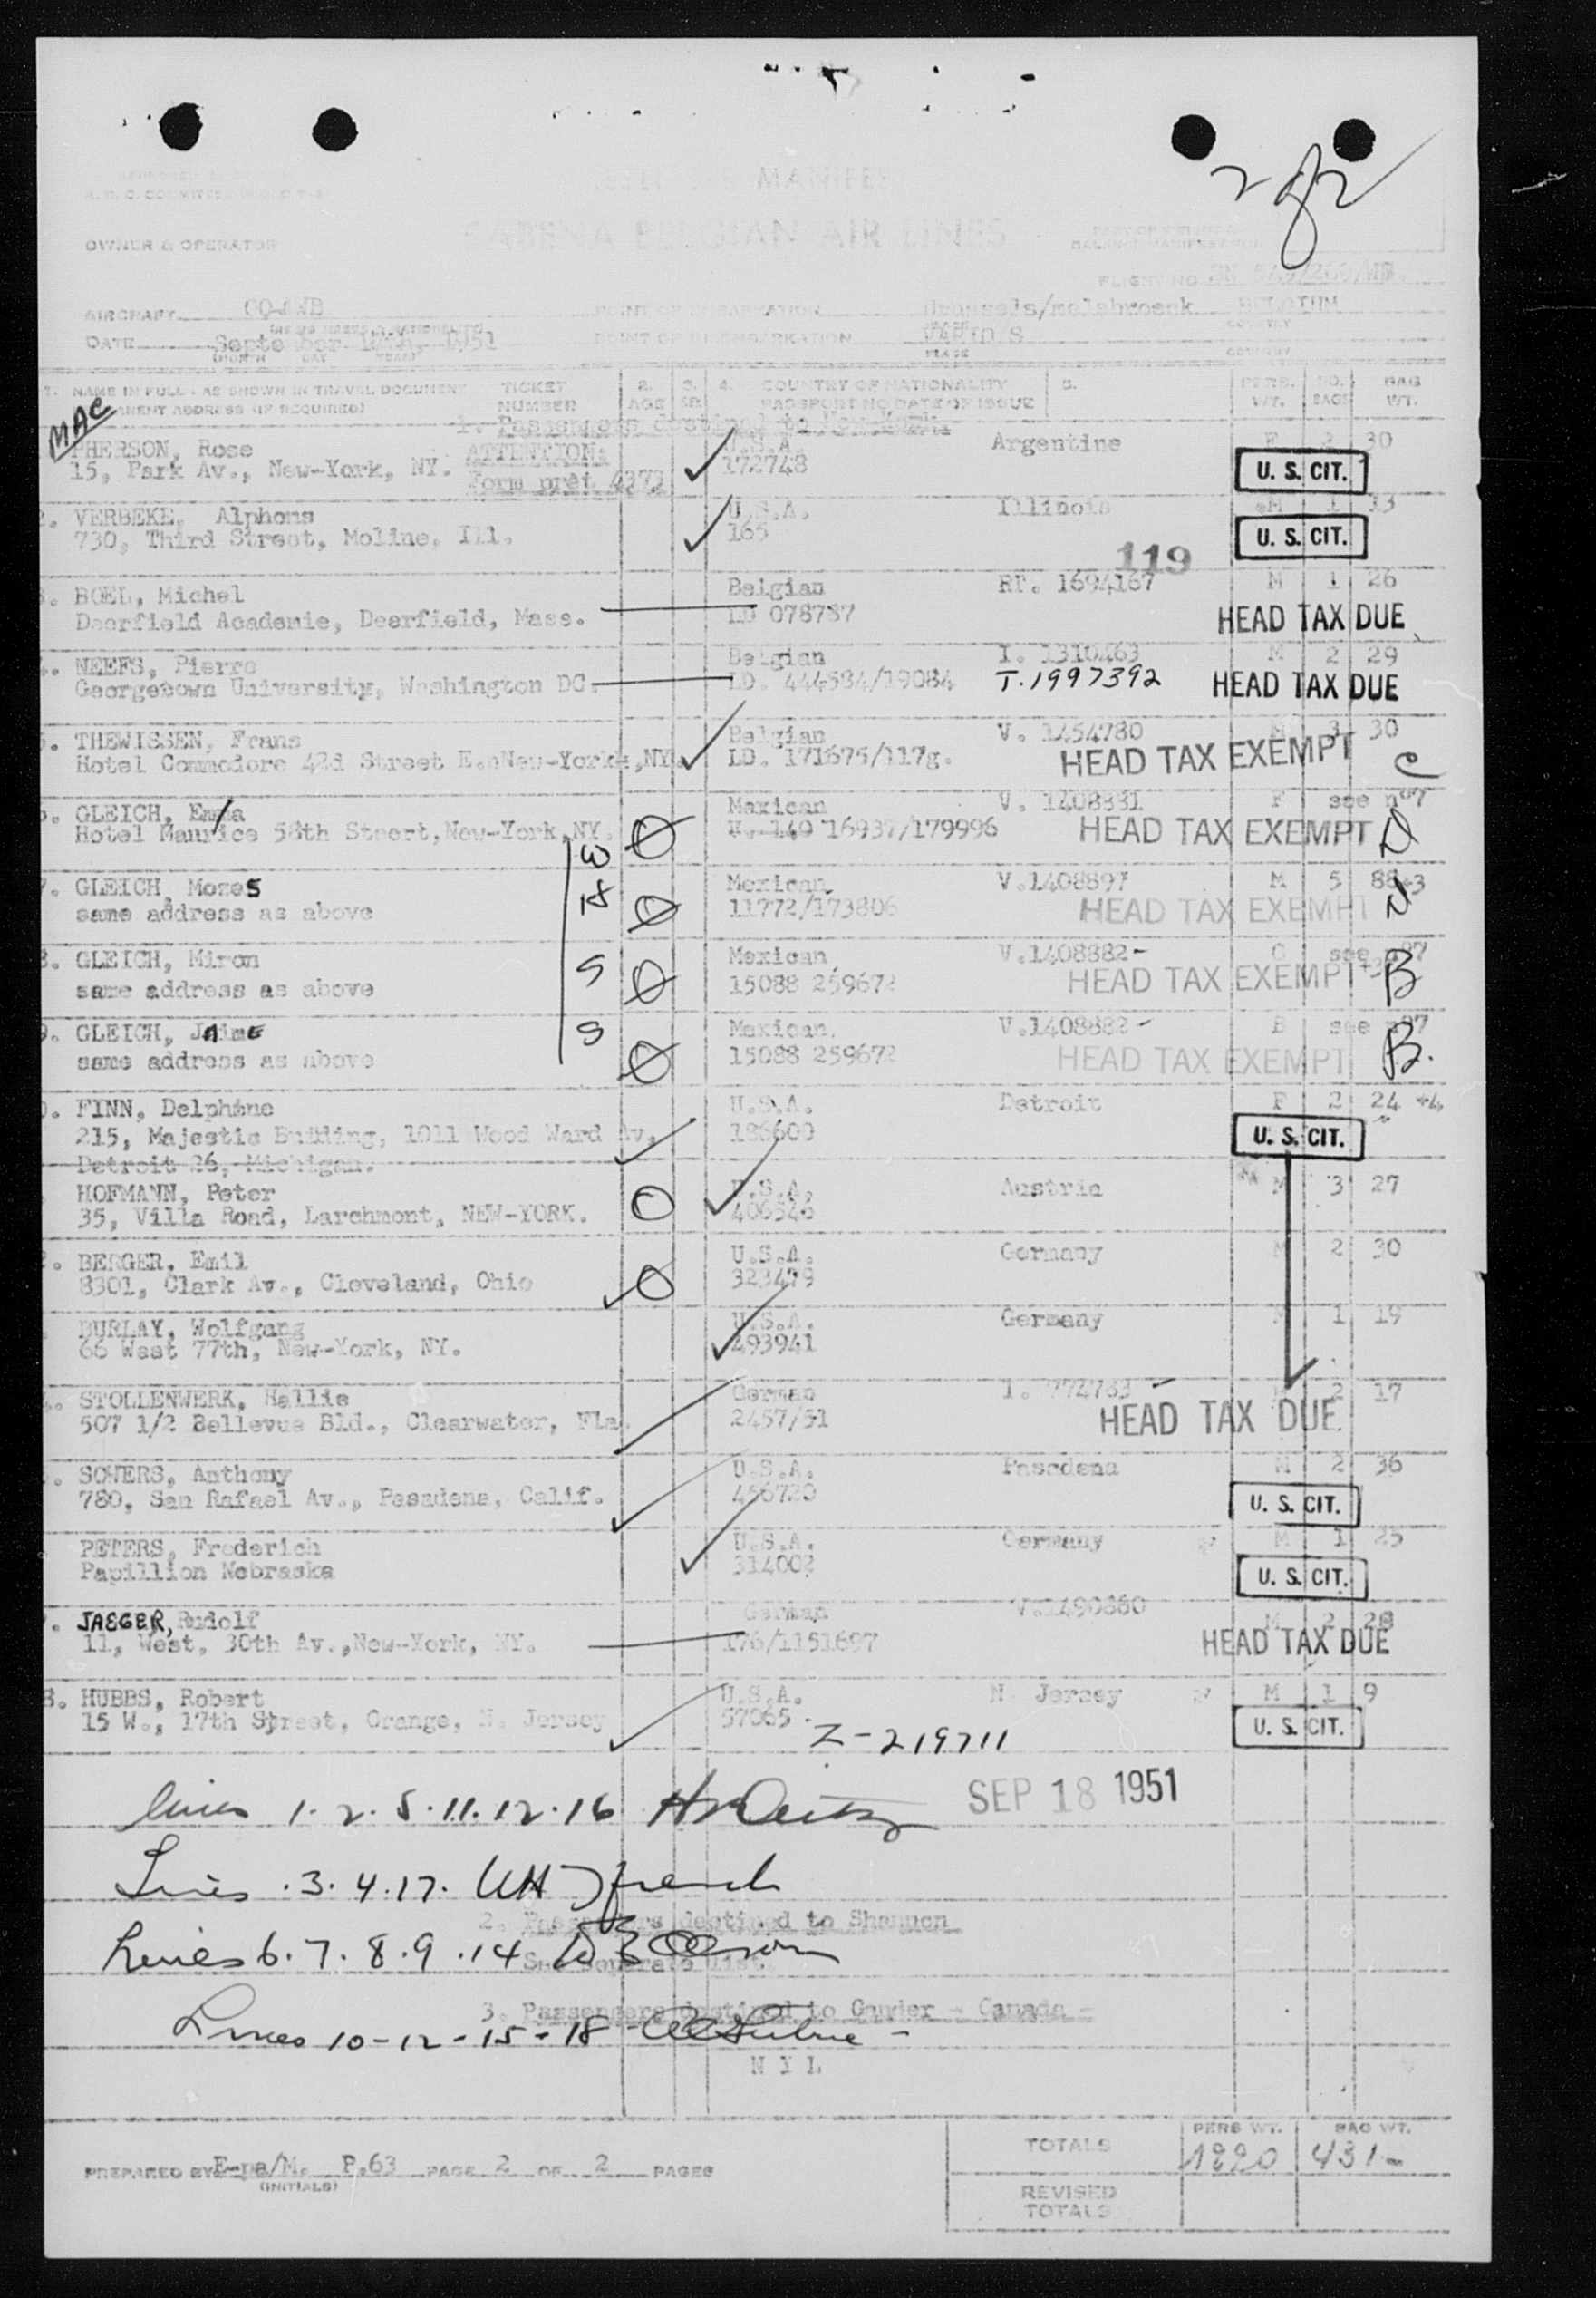 2 of 2
MANIFEST
SABENA BELGIAN AIR LINES
OWNER & OPERATOR
FLIGHT NO.
AIRCRAFT
POINT OF EMBARKATION Brussels/melsbroeck BELGIUM
DATE September 1951 POINT OF DISEMBARKATION
(MONTH DAY YEAR) PLACE COUNTRY
1. NAME IN FULL - AS SHOWN IN TRAVEL DOCUMENT TICKET 2. 3. 4. COUNTRY OF NATIONALITY 5. PERS. NO. BAG
PERMANENT ADDRESS (IF REQUIRED) NUMBER AGE SEX PASSPORT NO DATE OF ISSUE WT. BAGS WT.
1. Passengers destined to New York
MAC PHERSON, Rose ATTENTION: U.S.A. Argentine F 2 30
15, Park Av., New-York, NY. Form prêt 4373 172748 U. S. CIT.
2. VERBEKE, Alphons U.S.A. Illinois M 1 13
730, Third Street, Moline, Ill. 165 U. S. CIT.
119
3. BOEL, Michel Belgian RT. 1694167 M 1 26
Deerfield Academie, Deerfield, Mass. LD 078787 HEAD TAX DUE
4. NEEFS, Pierre Belgian I. 1310463 M 2 29
Georgetown University, Washington DC. LD. 444584/19084 T.1997392 HEAD TAX DUE
5. THEWISSEN, Frans Belgian V. 1454780 M 3 30
Hotel Commodore 42d Street E. New-York, NY. LD. 171675/117g. HEAD TAX EXEMPT C
6. GLEICH, Emma Mexican V. 1408881 F see n°7
Hotel Maurice 58th Steert, New-York, NY. 16937/179996 HEAD TAX EXEMPT
W
7. GLEICH, Moses Mexican V.1408897 M 5 88+3
same address as above H 11772/173806 HEAD TAX EXEMPT
8. GLEICH, Miron Mexican V.1408882- C see n°7
same address as above S 15088 259672 HEAD TAX EXEMPT B
9. GLEICH, JAIME Mexican. V.1408882- B see n°7
same address as above S 15088 259672 HEAD TAX EXEMPT B.
10. FINN, Delphine U.S.A. Detroit F 2 24 +4
215, Majestic Building, 1011 Wood Ward Av. 186600 U. S. CIT.
Detroit 26, Michigan.
HOFMANN, Peter U.S.A. Austria M 3 27
35, Villa Road, Larchmont, NEW-YORK. 406546
BERGER, Emil U.S.A. Germany M 2 30
8301, Clark Av., Cleveland, Ohio 323479
BURLAY, Wolfgang U.S.A. Germany M 1 19
66 West 77th, New-York, NY. 493941
STOLLENWERK, Hallie German I. 774783 2 17
507 1/2 Bellevue Bld., Clearwater, Fla. 2457/51 HEAD TAX DUE
SOWERS, Anthony U.S.A. Pasadena M 2 36
780, San Rafael Av., Pasadena, Calif. 456720 U. S. CIT.
PETERS, Frederich U.S.A. Germany M 1 25
Papillion Nebraska 314002 U. S. CIT.
JAEGER, Rudolf German V.1490880 M 2 28
11, West, 30th Av., New-York, NY. 176/1151697 HEAD TAX DUE
8. HUBBS, Robert U.S.A. N. Jersey M 1 9
15 W., 17th Street, Orange, N. Jersey 57065 U. S. CIT.
Z-219711
lines 1.2.5.11.12.16 SEP 18 1951
Lines .3.4.17. french
2. Passengers destined to Shannon
Lines 6.7.8.9.14
See separate list.
3. Passengers destined to Gander - Canada -
Lines 10-12-15-18
N I L
TOTALS PERS WT. 1220 BAG WT. 431-
PREPARED BY E-pa/M. P.63 PAGE 2 OF 2 PAGES
(INITIALS)
REVISED TOTALS